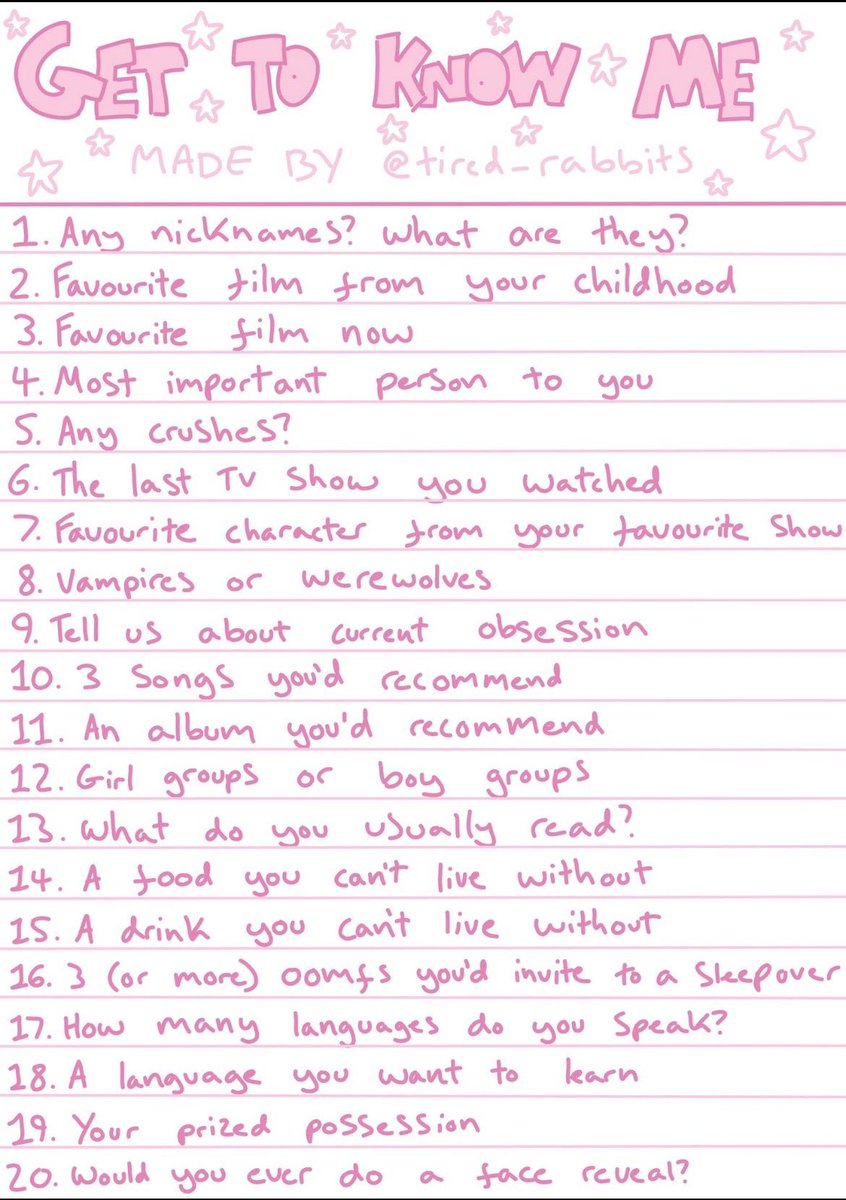 GET TO KNOW ME
MADE BY @tired_rabbits
1. Any nicknames? What are they?
2. Favourite film from your childhood
3. Favourite film now
4. Most important person to you
5. Any crushes?
6. The last TV Show you watched
7. Favourite character from your favourite Show
8. Vampires or werewolves
9. Tell us about current obsession
10. 3 Songs you'd recommend
11. An album you'd recommend
12. Girl groups or boy groups
13. What do you usually read?
14. A food you can't live without
15. A drink you can't live without
16. 3 (or more) oomfs you'd invite to a Sleepover
17. How many languages do you Speak?
18. A language you want to learn
19. Your prized possession
20. Would you ever do a face reveal?